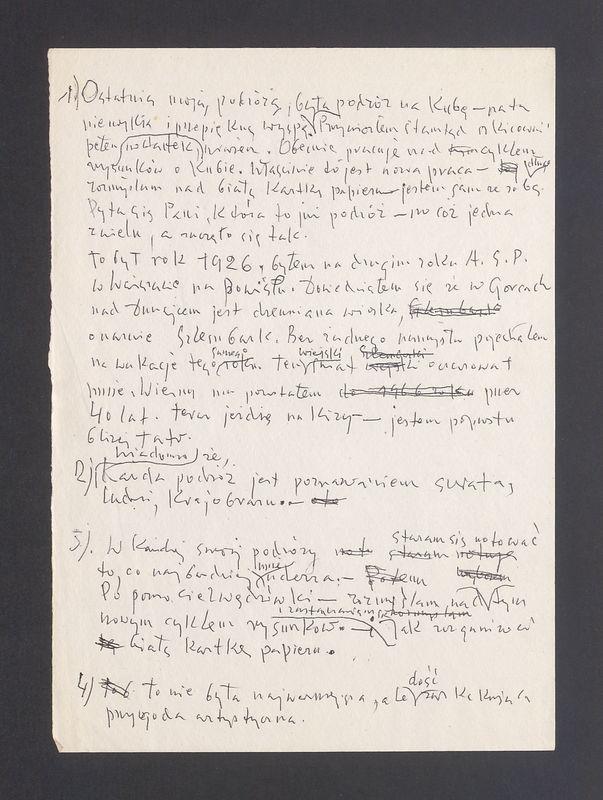 1.) Ostatnią moją podróżą, była podróż na Kubę – na tą
niezwykłą i przepiękną wyspę. Przywiozłem stamtąd szkicownik
pełen notatek, wrażeń. Obecnie pracuję nad cyklem
rysunków o Kubie. Właśnie to jest nowa praca – długo
rozmyślam nad białą kartką papieru – jestem sam ze sobą.
Pyta się Pani, która to już podróż – no cóż jedna
z wielu, a zaczęło się tak.
To był rok 1926, byłem na drugim roku A.S.P.
w Warszawie na Powiślu. Dowiedziałem się że w Gorcach
nad Dunajcem jest drewniana wioska,
o nazwie Szlembark. Bez żadnego namysłu pojechałem
na wakacje tego samego roku. Ten wiejski temat oczarował
mnie. Wierny mu pozostałem przez
40 lat. Teraz jeżdżę na Kizy – jestem po prostu
bliżej Tatr.
2) Wiadomo że, każda podróż jest poznawaniem świata,
ludzi, krajobrazu.
3). W każdej swojej podróży staram się notować
to, co najbardziej mnie uderza. –
Po powrocie z wędrówki – rozmyślam, nad tym
nowym cyklem rysunków. – i zastanawiam się jak rozgraniczyć
białą kartkę papieru.
4) to nie była najważniejsza, ale dość zaskakująca
przygoda artystyczna.